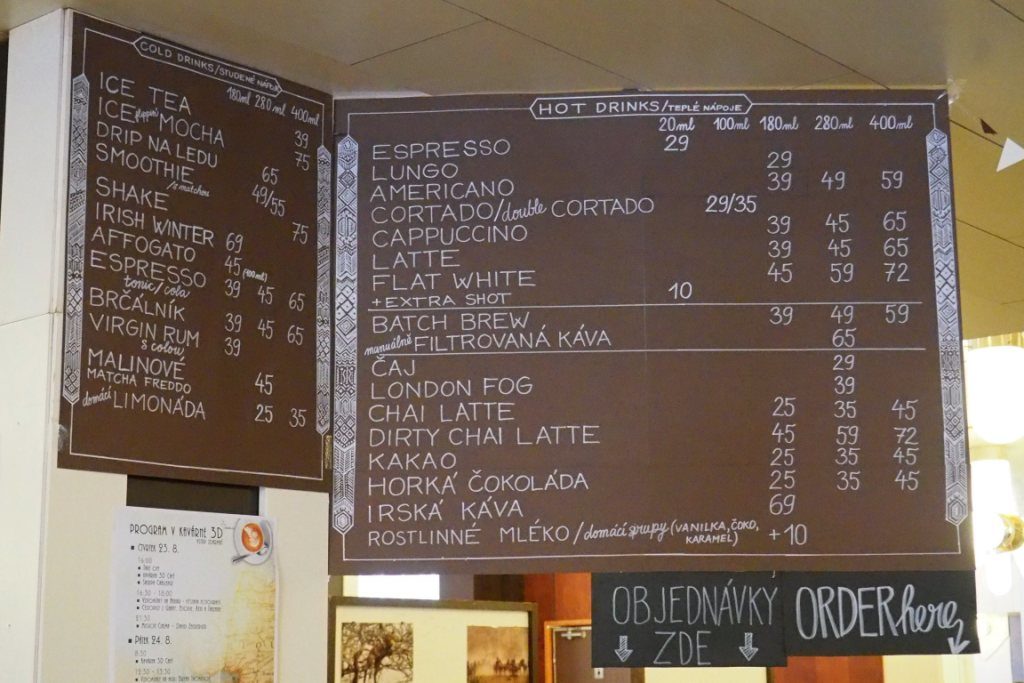 COLD DRINKS/STUDENÉ NÁPOJE
180ml 280ml 400ml
ICE TEA 39
ICE flippin' MOCHA 75
DRIP NA LEDU 65
SMOOTHIE/s matchou 49/55
SHAKE 75
IRISH WINTER 69
AFFOGATO 45 (100ml)
ESPRESSO 39 45 65
tonic/cola
BRČÁLNÍK 39 45 65
VIRGIN RUM 39
s colou
MALINOVÉ
MATCHA FREDDO 45
domácí LIMONÁDA 25 35
HOT DRINKS/TEPLÉ NÁPOJE
20ml 100ml 180ml 280ml 400ml
ESPRESSO 29
LUNGO 29
AMERICANO 39 49 59
CORTADO/double CORTADO 29/35
CAPPUCCINO 39 45 65
LATTE 39 45 65
FLAT WHITE 45 59 72
+EXTRA SHOT 10
BATCH BREW 39 49 59
manuálně FILTROVANÁ KÁVA 65
ČAJ 29
LONDON FOG 39
CHAI LATTE 25 35 45
DIRTY CHAI LATTE 45 59 72
KAKAO 25 35 45
HORKÁ ČOKOLÁDA 25 35 45
IRSKÁ KÁVA 69
ROSTLINNÉ MLÉKO/domácí sirupy (VANILKA, ČOKO, KARAMEL) +10
OBJEDNÁVKY
ZDE
ORDER here
PROGRAM V KAVÁRNĚ 3D
ČTVRTEK 23. 8.
16:00
KAVÁRNA 3D CHCE
16:30 - 18:00
21:30
PÁTEK 24. 8.
8:30
KAVÁRNA 3D CHCE
12:30 - 13:30